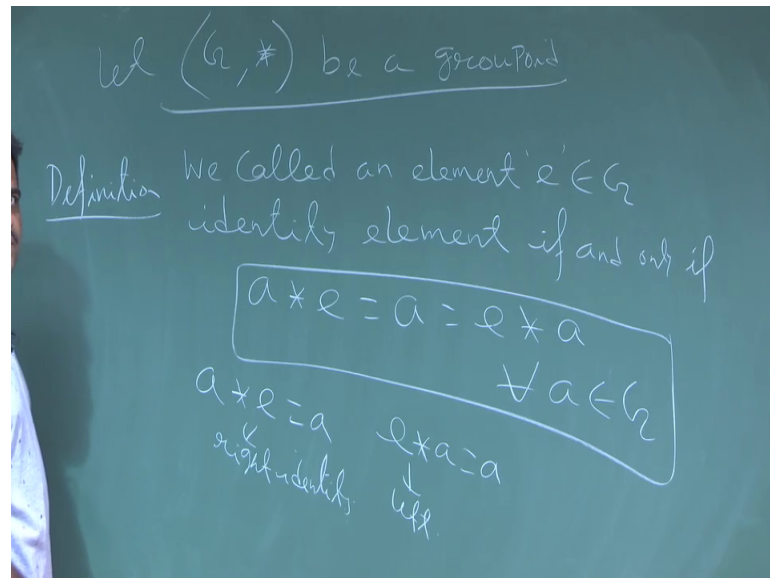 Let (G, *) be a groupoid
Definition We called an element 'e' ∈ G
identity element if and only if
a * e = a = e * a
∀ a ∈ G
a * e = a e * a = a
↓ ↓
right identity left